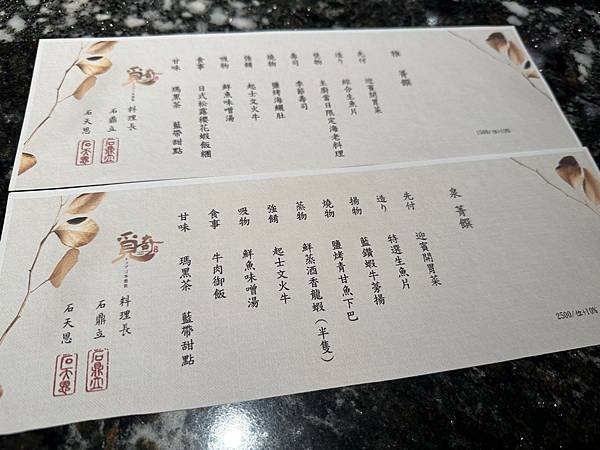 1500/位+10%
菁饌
先付 迎賓開胃菜
造り 綜合生魚片
主廚當日限定海老料理
壽司 季節壽司
燒物 鹽烤海鱺肚
強餚 起士文火牛
吸物 鮮魚味噌湯
食事 日式松露櫻花蝦飯糰
甘味 瑪黑茶 藍帶甜點
覓奇
料理長
石鼎立 石鼎立
石天恩 石天恩
2500/位+10%
泉 菁饌
先付 迎賓開胃菜
造り 特選生魚片
揚物 藍鑽蝦牛蒡揚
燒物 鹽烤青甘魚下巴
蒸物 鮮蒸酒香龍蝦(半隻)
強餚 起士文火牛
吸物 鮮魚味噌湯
食事 牛肉御飯
甘味 瑪黑茶 藍帶甜點
覓奇
料理長
石鼎立 石鼎立
石天恩 石天恩